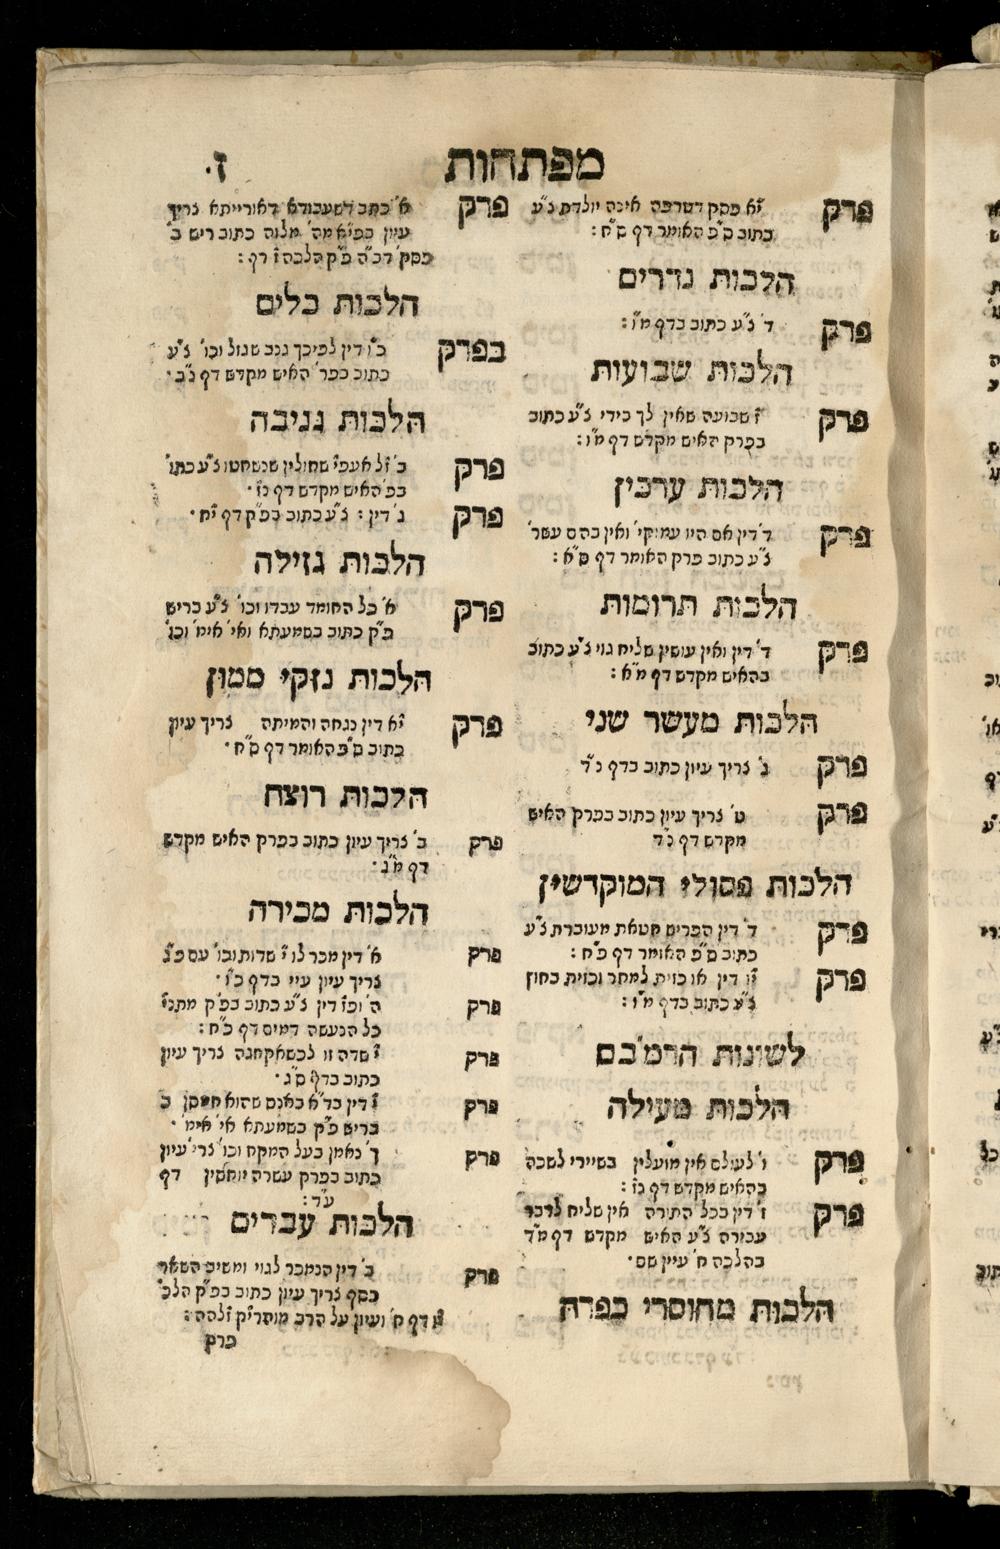 מפתחות
ז.
פרק י"א פסק דטרפה אינה יולדת צ"ע
כתוב ס"פ האומר דף ס"ח :
הלכות נדרים
פרק ד' צ"ע כתוב בדף מ"ו :
הלכות שבועות
פרק ז' שבועה שאין לך בידי צ"ע כתוב
בפרק האיש מקדש דף מ"ו :
הלכות ערכין
פרק ד' דין אם היו עמוקי' ואין בהם עשר'
צ"ע כתוב פרק האומר דף ס"א :
הלכות תרומות
פרק ד' דין ואין עושין שליח גוי צ"ע כתוב
בהאיש מקדש דף מ"א :
הלכות מעשר שני
פרק ג' צריך עיון כתוב בדף נ"ד
פרק ט' צריך עיון כתוב בפרק האיש
מקדש דף נ"ד
הלכות פסולי המוקדשין
פרק ד' דין הפריש חטאת מעוברת צ"ע
כתוב ס"פ האומר דף ס"ח :
פרק י"ו דין או כזית למחר וכזית בחוץ
צ"ע כתוב בדף מ"ו :
לשונות הרמב"ם
הלכות מעילה
פרק ו' לעולם אין מועלין בשיירי לשכה
בהאיש מקדש דף נ"ו :
פרק ז' דין בכל התורה אין שליח לדבר
עבירה צ"ע האיש מקדש דף מ"ד
בהלכה ח' עיין שם .
הלכות מחוסרי כפרה
פרק א' כתב דשעבודא דאורייתא צריך
עיון בפי"א מה' מלוה כתוב ריש ב'
פסק' רכ"ה פ"ק הלכה
הלכות כלים
בפרק כ"ו דין לפיכך גנב שגזל וכו' צ"ע
כתוב בפר' האיש מקדש דף נ"ב .
הלכות גניבה
פרק ב' ז"ל אעפ"י שחולין שנשחטו צ"ע כתו'
בפ' האיש מקדש דף נ"ו .
פרק ג' דין : צ"ע כתוב בפ"ק דף י"ח .
הלכות גזילה
פרק א' כל החומד עבדו וכו' צ"ע בריש
פ"ק כתוב בשמעתא ואי' אימ' וכו'
הלכות נזקי ממון
פרק י"א דין נגחה והמיתה צריך עיון
כתוב ס"פ האומר דף ס"ח .
הלכות רוצח
פרק ב' צריך עיון כתוב בפרק האיש מקדש
דף מ"ג .
הלכות מכירה
פרק א' דין מכר לו י' שדות וכו' עם
צריך עיון עיי' בדף כ"ו .
פרק ה' ופ"ו דין צ"ע כתוב בפ"ק מתני'
כל הנעשה דמים דף כ"ח :
פרק ז' שדה זו לכשאקחנה צריך עיון
כתוב בדף ס"ג .
פרק ז' דין בד"א באנס שהוא חמסן
בריש פ"ק בשמעתא אי' אימ' .
פרק ך' נאמן בעל המקח וכו' צרי' עיון
כתוב בפרק עשרה יוחסין דף
ע"ד :
הלכות עבדים
פרק ב' דין הנמכר לגוי ומשיב השאר
כסף צריך עיון כתוב בפ"ק הלכ'
דף ח' ועיון על הרב מוהרי"ק זלהה :
פרק